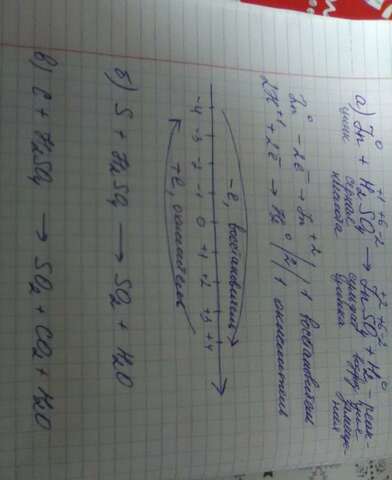 а) Zn⁰ + H₂⁺¹S⁺⁶O₄⁻² → Zn⁺²S⁺⁶O₄⁻² + H₂⁰ - реак-
цинк серная сульфат ция
кислота цинка замеще-
ния
Zn⁰ - 2ē → Zn⁺² | 1 восстановитель
2H⁺¹ + 2ē → H₂⁰ |2| 1 окислитель
-ē, восстановитель
-4 -3 -2 -1 0 +1 +2 +3 +4
+ē, окислитель
б) S + H₂SO₄ → SO₂ + H₂O
в) C + H₂SO₄ → SO₂ + CO₂ + H₂O